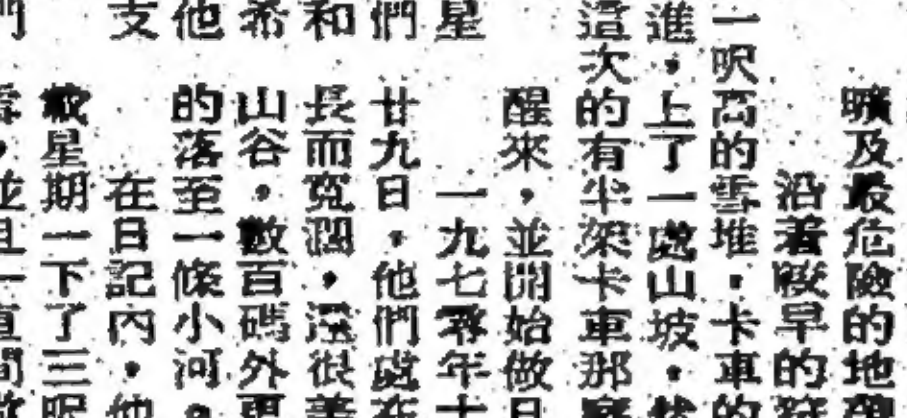 曠及最危險的地
沿着較早的
一呎高的雪堆，卡車的
進，上了一處山坡，
這次的有半架卡車那
醒來，並開始做日
星 一九七零年十
們 廿九日，他們處在
和 長而寬濶，還很
希 山谷。數百碼外更
他 的落至一條小河。
支 在日記內，他
們 星期一下了三呎
並且一直